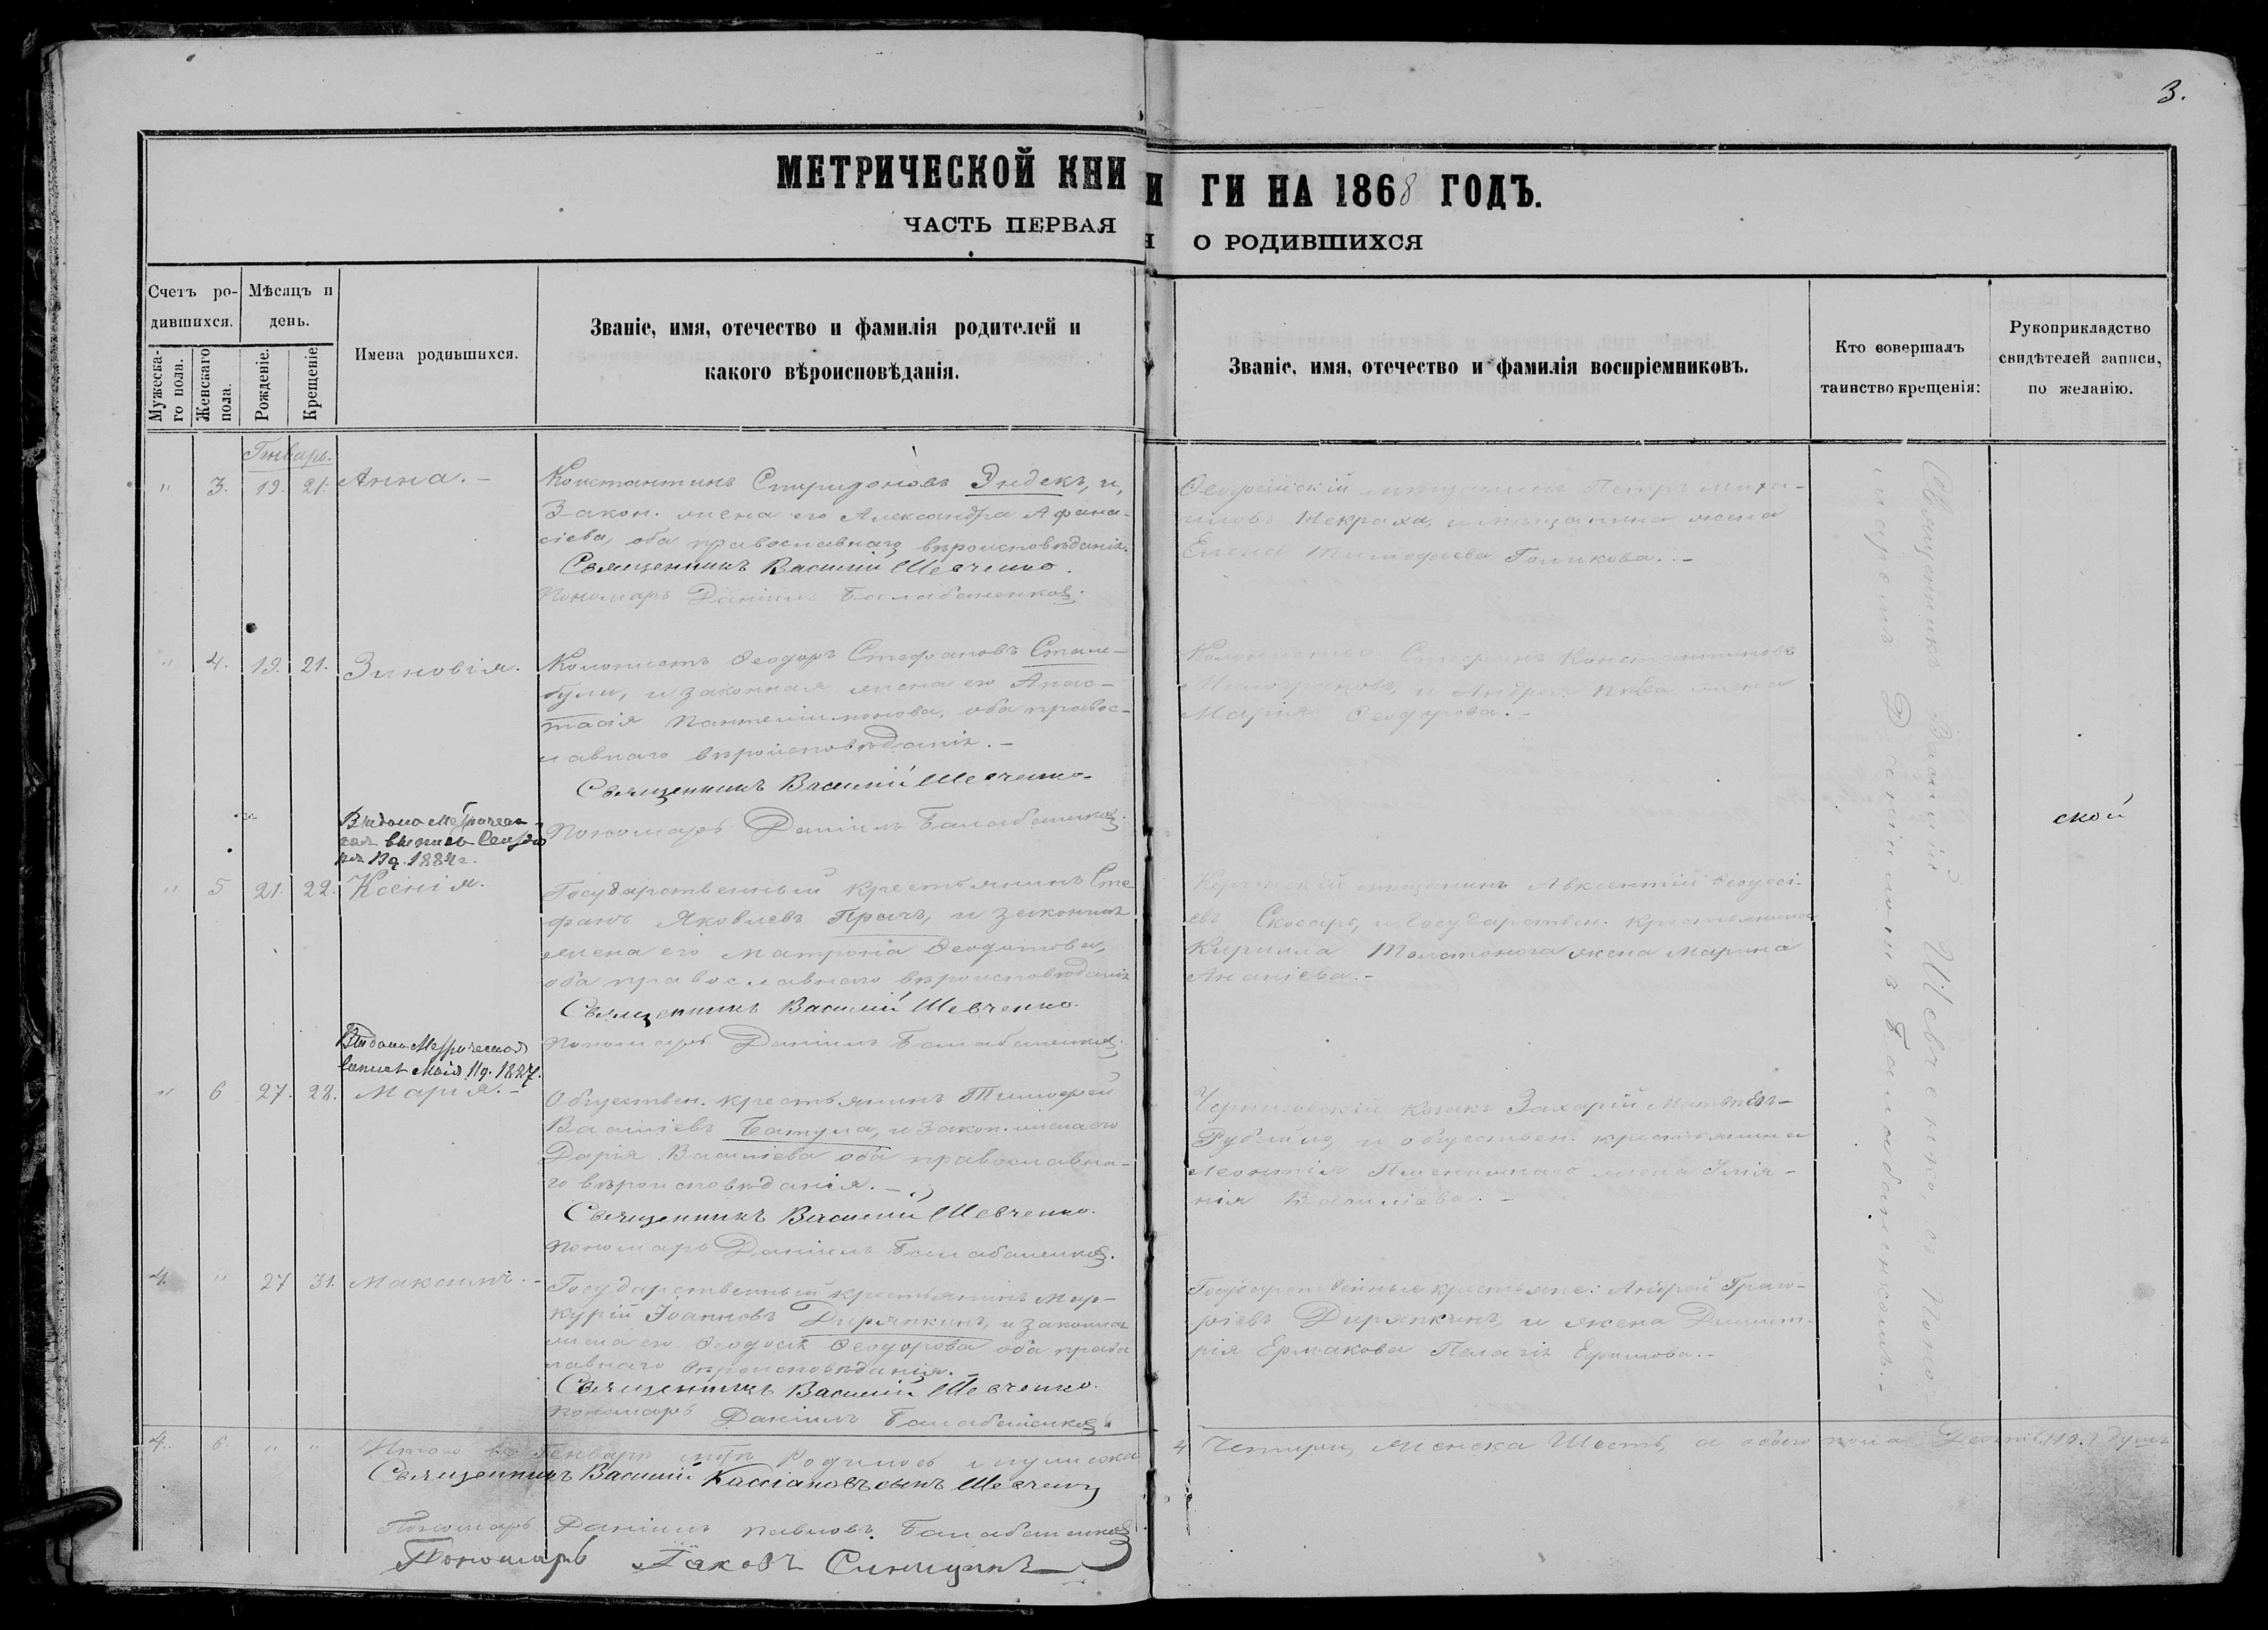 3.
МЕТРИЧЕСКОЙ КНИ
И ГИ НА 1868 ГОДЪ.
ЧАСТЬ ПЕРВАЯ
Я О РОДИВШИХСЯ
Счетъ ро-
дившихся.
Мужеска-
го пола.
Женскаго
пола.
Мѣсяцъ и
день.
Рожденіе.
Крещеніе
Имена родившихся.
Званіе, имя, отечество и фамилія родителей и
какого вѣроисповѣданія.
Званіе, имя, отечество и фамилія воспріемниковъ.
Кто совершалъ
таинство крещенія:
Рукоприкладство
свидѣтелей записи,
по желанію.
Генварь.
" 3. 19. 21. Анна. –
Константинъ Спиридоновъ Эндекъ, и,
Закон. жена его Александра Афана-
сіева, оба православнаго вѣроисповѣданія.
Священникъ Василій Шевченко.
Пономарь Даніилъ Балабаненковъ.
Ѳеодосійскій мѣщанинъ Петръ Миха-
иловъ Некраха, и мѣщанина жена
Елена Тимоѳеева Голикова. –
" 4. 19. 21. Зиновія.
Колонистъ Ѳеодоръ Стефановъ Стам-
були, и законная жена его Анас-
тасія Пантелиимонова, оба правос-
лавнаго вѣроисповѣданія. –
Священникъ Василій Шевченко.
Пономарь Даніилъ Балабаненковъ.
Колонисты Стефанъ Константиновъ
и Андрея жена
Марія Ѳеодорова. –
Выдана Метричес-
кая выпись
1884 г.
ской
" 5 21. 22. Ксенія.
Государственный крестьянинъ Сте
фанъ Яковлевъ Прачъ, и законная
жена его Матрона Ѳеодотова,
оба православнаго вѣроисповѣданія
Священникъ Василій Шевченко.
Пономарь Даніилъ Балабаненковъ.
Керченскій мѣщанинъ Авксентій Ѳеодосі-
евъ Скосарь, и Государствен. крестьянина
Кирилла Толстонога жена Марина
Ананіева. –
Выдана Метрическая
выпись Мая 11 д. 1887.
" 6 27. 28. Марія. –
Обществен. крестьянинъ Тимофей
Василіевъ Батула, и закон. жена его
Дарія Василіева оба православна-
го вѣроисповѣданія. –
Священникъ Василій Шевченко.
Пономарь Даніилъ Балабаненковъ.
Черниговскій козакъ Захарій Матвѣевъ
и обществен. крестьянина
Леонтія Пшеничнаго жена
Василіева. –
4. " 27 31. Максимъ. –
Государственный крестьянинъ Мер-
курій Іоанновъ Дирянкинъ, и законная
жена его Ѳеодосія Ѳеодорова оба правос
лавнаго вѣроисповѣданія. –
Священникъ Василій Шевченко.
Пономарь Даніилъ Балабаненковъ.
Государственные крестьяне: Андрей Григо-
ріевъ Дирянкинъ, и жена Димит-
рія Ермакова Пелагія Ефимова. –
Священникъ Василій Шевченко съ Поно-
маремъ Даніиломъ Балабаненковымъ. –
4. 6. " " Итого въ Генварѣ м-цѣ родилось мужеска
4 Четыри, женска Шесть, а обоего пола Десять (10.) душъ
Священникъ Василій Кассіановъ сынъ Шевченко
Пономарь Даніилъ Павловъ Балабаненковъ
Пономарь Іаковъ Синицынъ